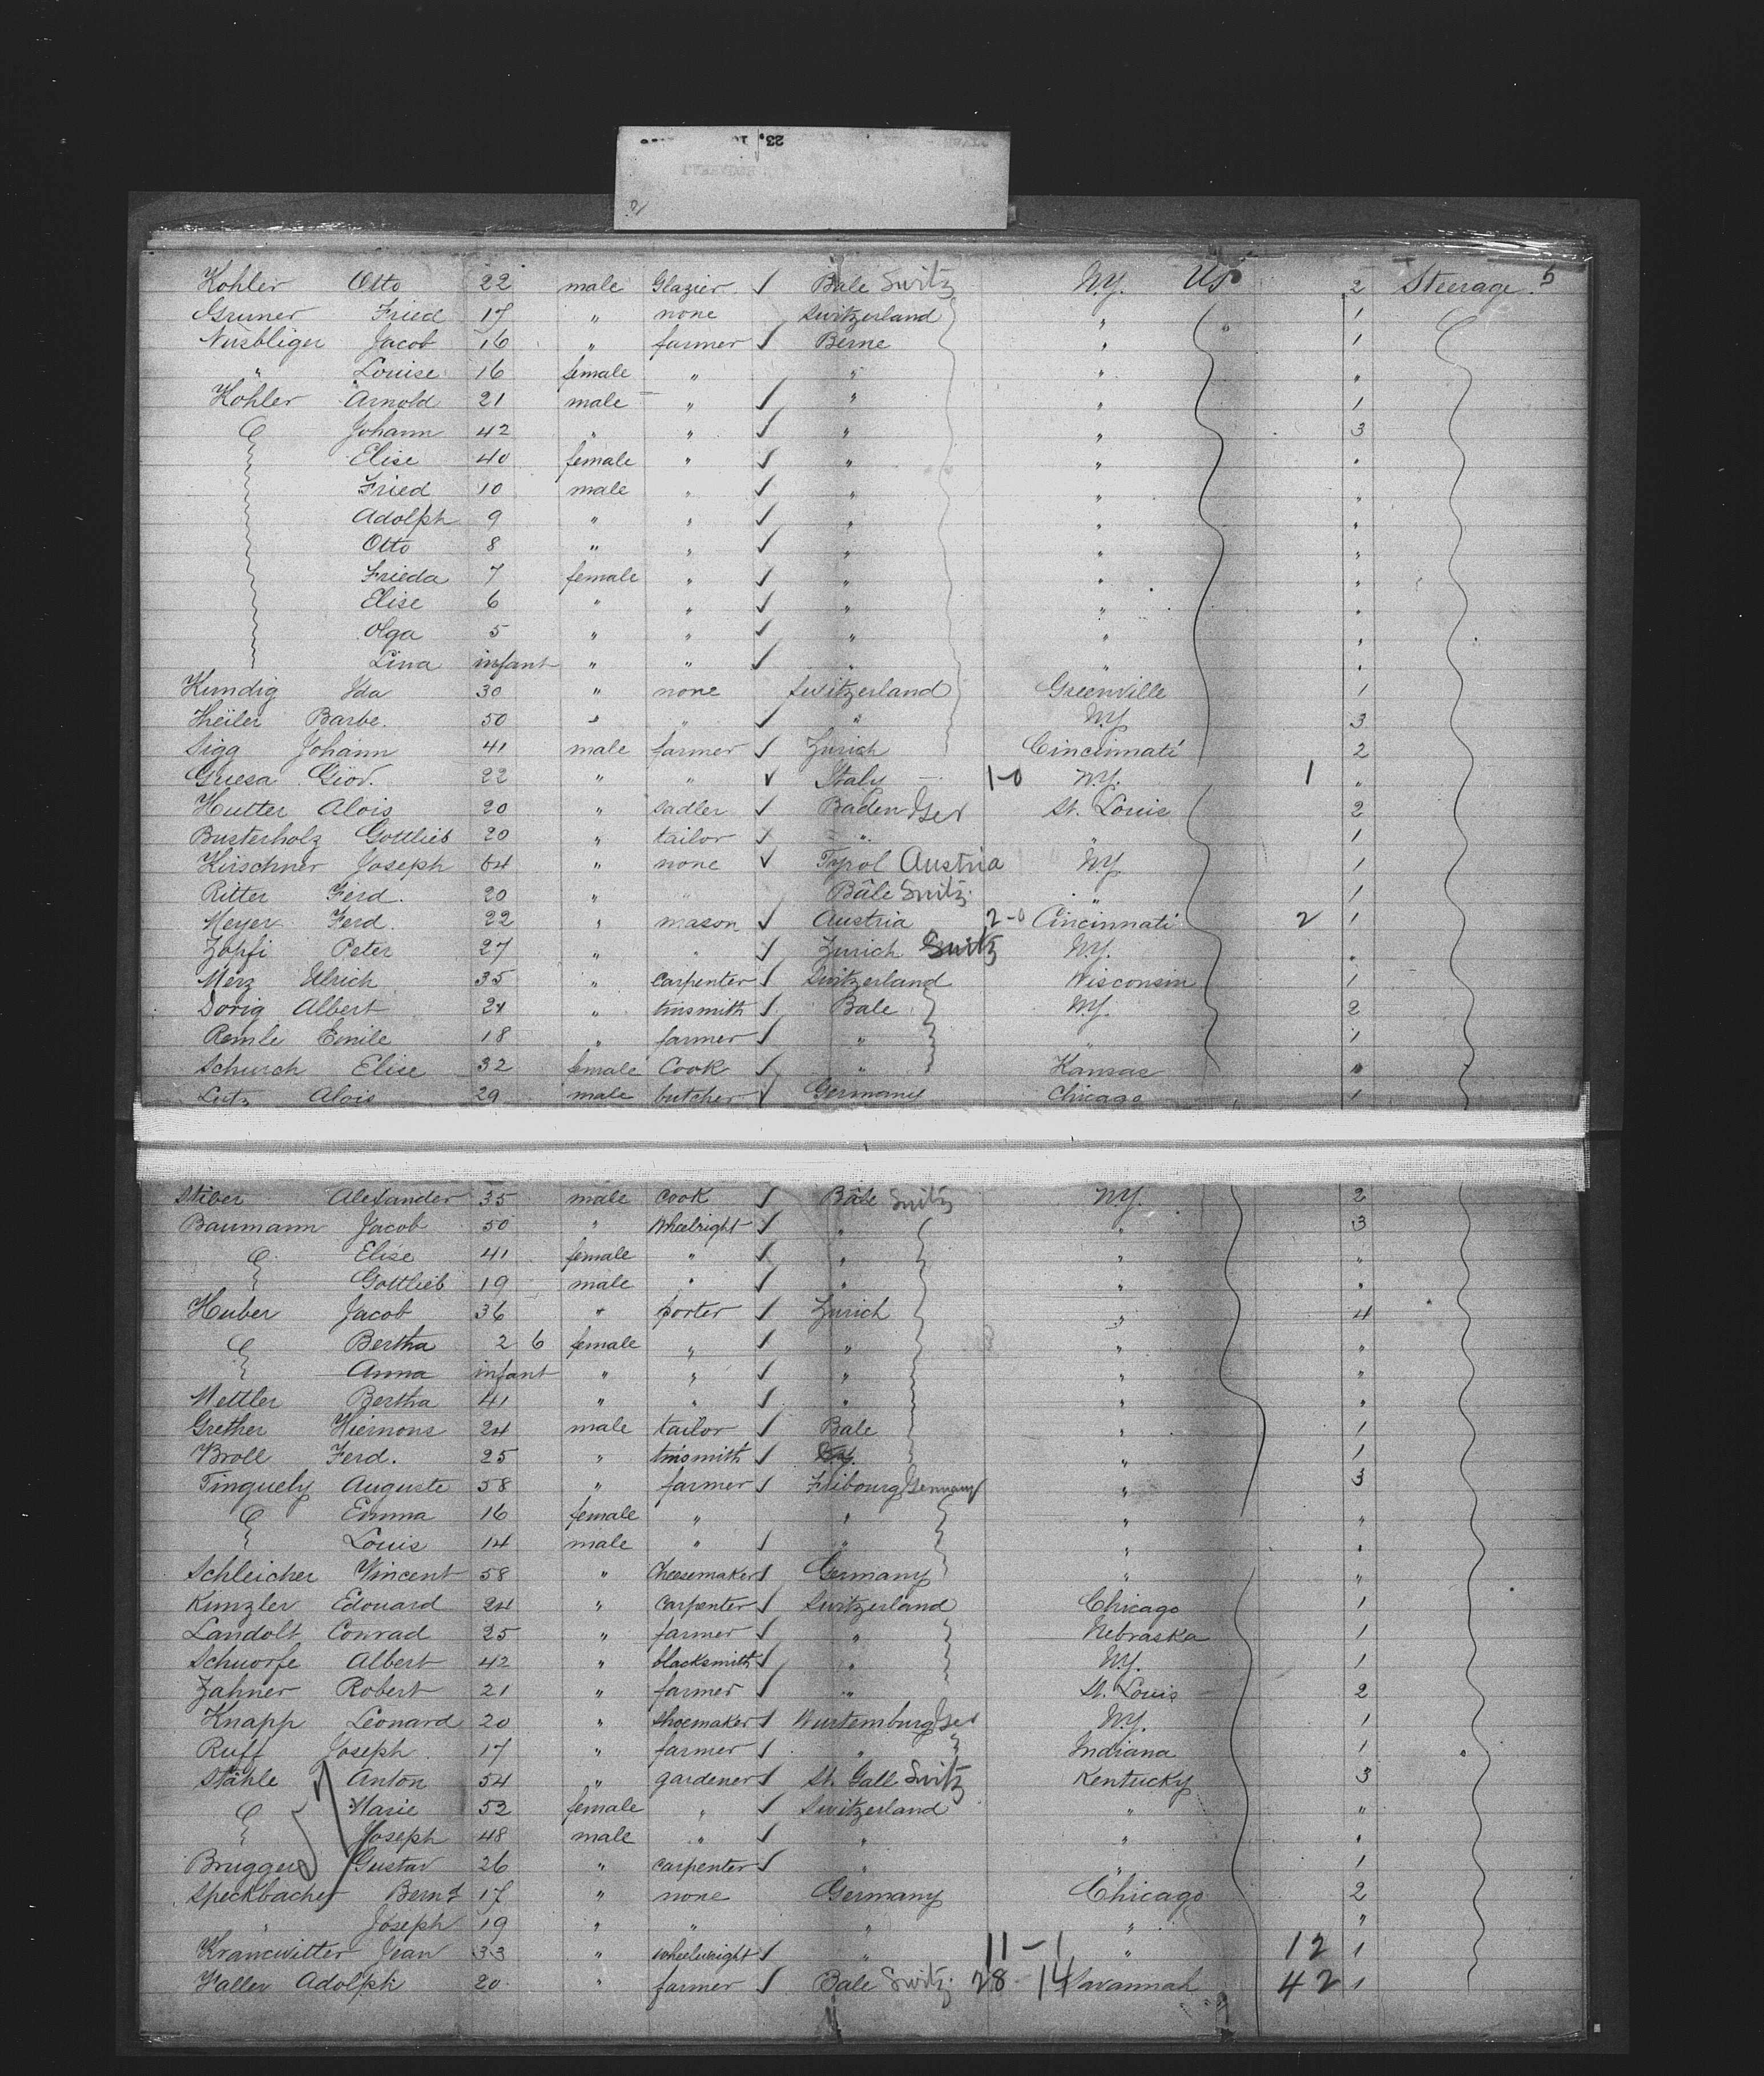 Kohler Otto 22 male Glazier ✓ Bale Switz NY. US 2 Steerage. 5
Gruner Fried 17 " none Switzerland " " 1
Nusbliger Jacob 16 " farmer ✓ Berne " 1
" Louise 16 female " " " "
Kohler Arnold 21 male " ✓ " " 1
Johann 42 " " ✓ " " 3
Elise 40 female " ✓ " " "
Fried 10 male " ✓ " " "
Adolph 9 " " ✓ " " "
Otto 8 " " ✓ " " "
Frieda 7 female " ✓ " " "
Elise 6 " " ✓ " " "
Olga 5 " " ✓ " " "
Lina infant " " ✓ " " "
Kundig Ida 30 " none Switzerland Greenville 1
Theiler Barbe. 50 " " ✓ " NY 3
Sigg Johann 41 male farmer ✓ Zurich Cincinnati 2
Giov. 22 " " ✓ Italy 1-0 NY. 1 "
Hutter Alois 20 " sadler ✓ Baden Ger St. Louis 2
Busterholz Gottlieb 20 " tailor ✓ " " 1
Kirschner Joseph 64 " none ✓ Tyrol Austria NY. 1
Ritter Ferd. 20 " " Bâle Switz. " 1
Meyer Ferd. 22 " mason ✓ Austria 2-0 Cincinnati 2 1
Zopfi Peter 27 " " ✓ Zurich Switz NY. "
Merz Ulrich 35 " carpenter ✓ Switzerland Wisconsin 1
Dorig Albert 24 " tinsmith ✓ Bale NY. 2
Remle Emile 18 " farmer ✓ " " 1
Schurch Elise 32 female Cook ✓ " Kansas "
Lutz Alois 29 male butcher ✓ Germany Chicago 1
Stiber Alexander 35 male cook ✓ Bâle Switz NY. 2
Baumann Jacob 50 " Wheelright ✓ " " 3
Elise 41 female " ✓ " " "
Gottlieb 19 male " ✓ " " "
Huber Jacob 36 " porter ✓ Zurich " 4
Bertha 2 6 female " ✓ " " "
Anna infant " " ✓ " " "
Mettler Bertha 41 " " ✓ " " "
Grether Hiernons 24 male tailor ✓ Bale " 1
Broll Ferd. 25 " tinsmith ✓ " 1
Tinguely Auguste 58 " farmer ✓ Fribourg Germany " 3
Emma 16 female " " " "
Louis 14 male " ✓ " " "
Schleicher Vincent 58 " Cheesemaker ✓ Germany " "
Kunzler Edouard 24 " carpenter ✓ Switzerland Chicago 1
Landolt Conrad 25 " farmer ✓ " Nebraska 1
Schuorfe Albert 42 " blacksmith ✓ " NY. 1
Zahner Robert 21 " farmer ✓ " St. Louis 2
Knapp Leonard 20 " Shoemaker ✓ Wurtemburg Ger NY. 1
Ruff Joseph 17 " farmer ✓ " Indiana 1
Stähle Anton 54 " gardener ✓ St. Gall Switz Kentucky 3
Marie 52 female " ✓ Switzerland " "
Joseph 48 male " ✓ " " "
Brugger Gustav 26 " carpenter ✓ " " 1
Speckbacher Bernd 17 " none Germany Chicago 2
" Joseph 19 " " " " "
Krancwitter Jean 33 " wheelwright ✓ " 11-1 " 12 1
Faller Adolph 20 " farmer ✓ Bale Switz. 28-14 Savannah 42 1